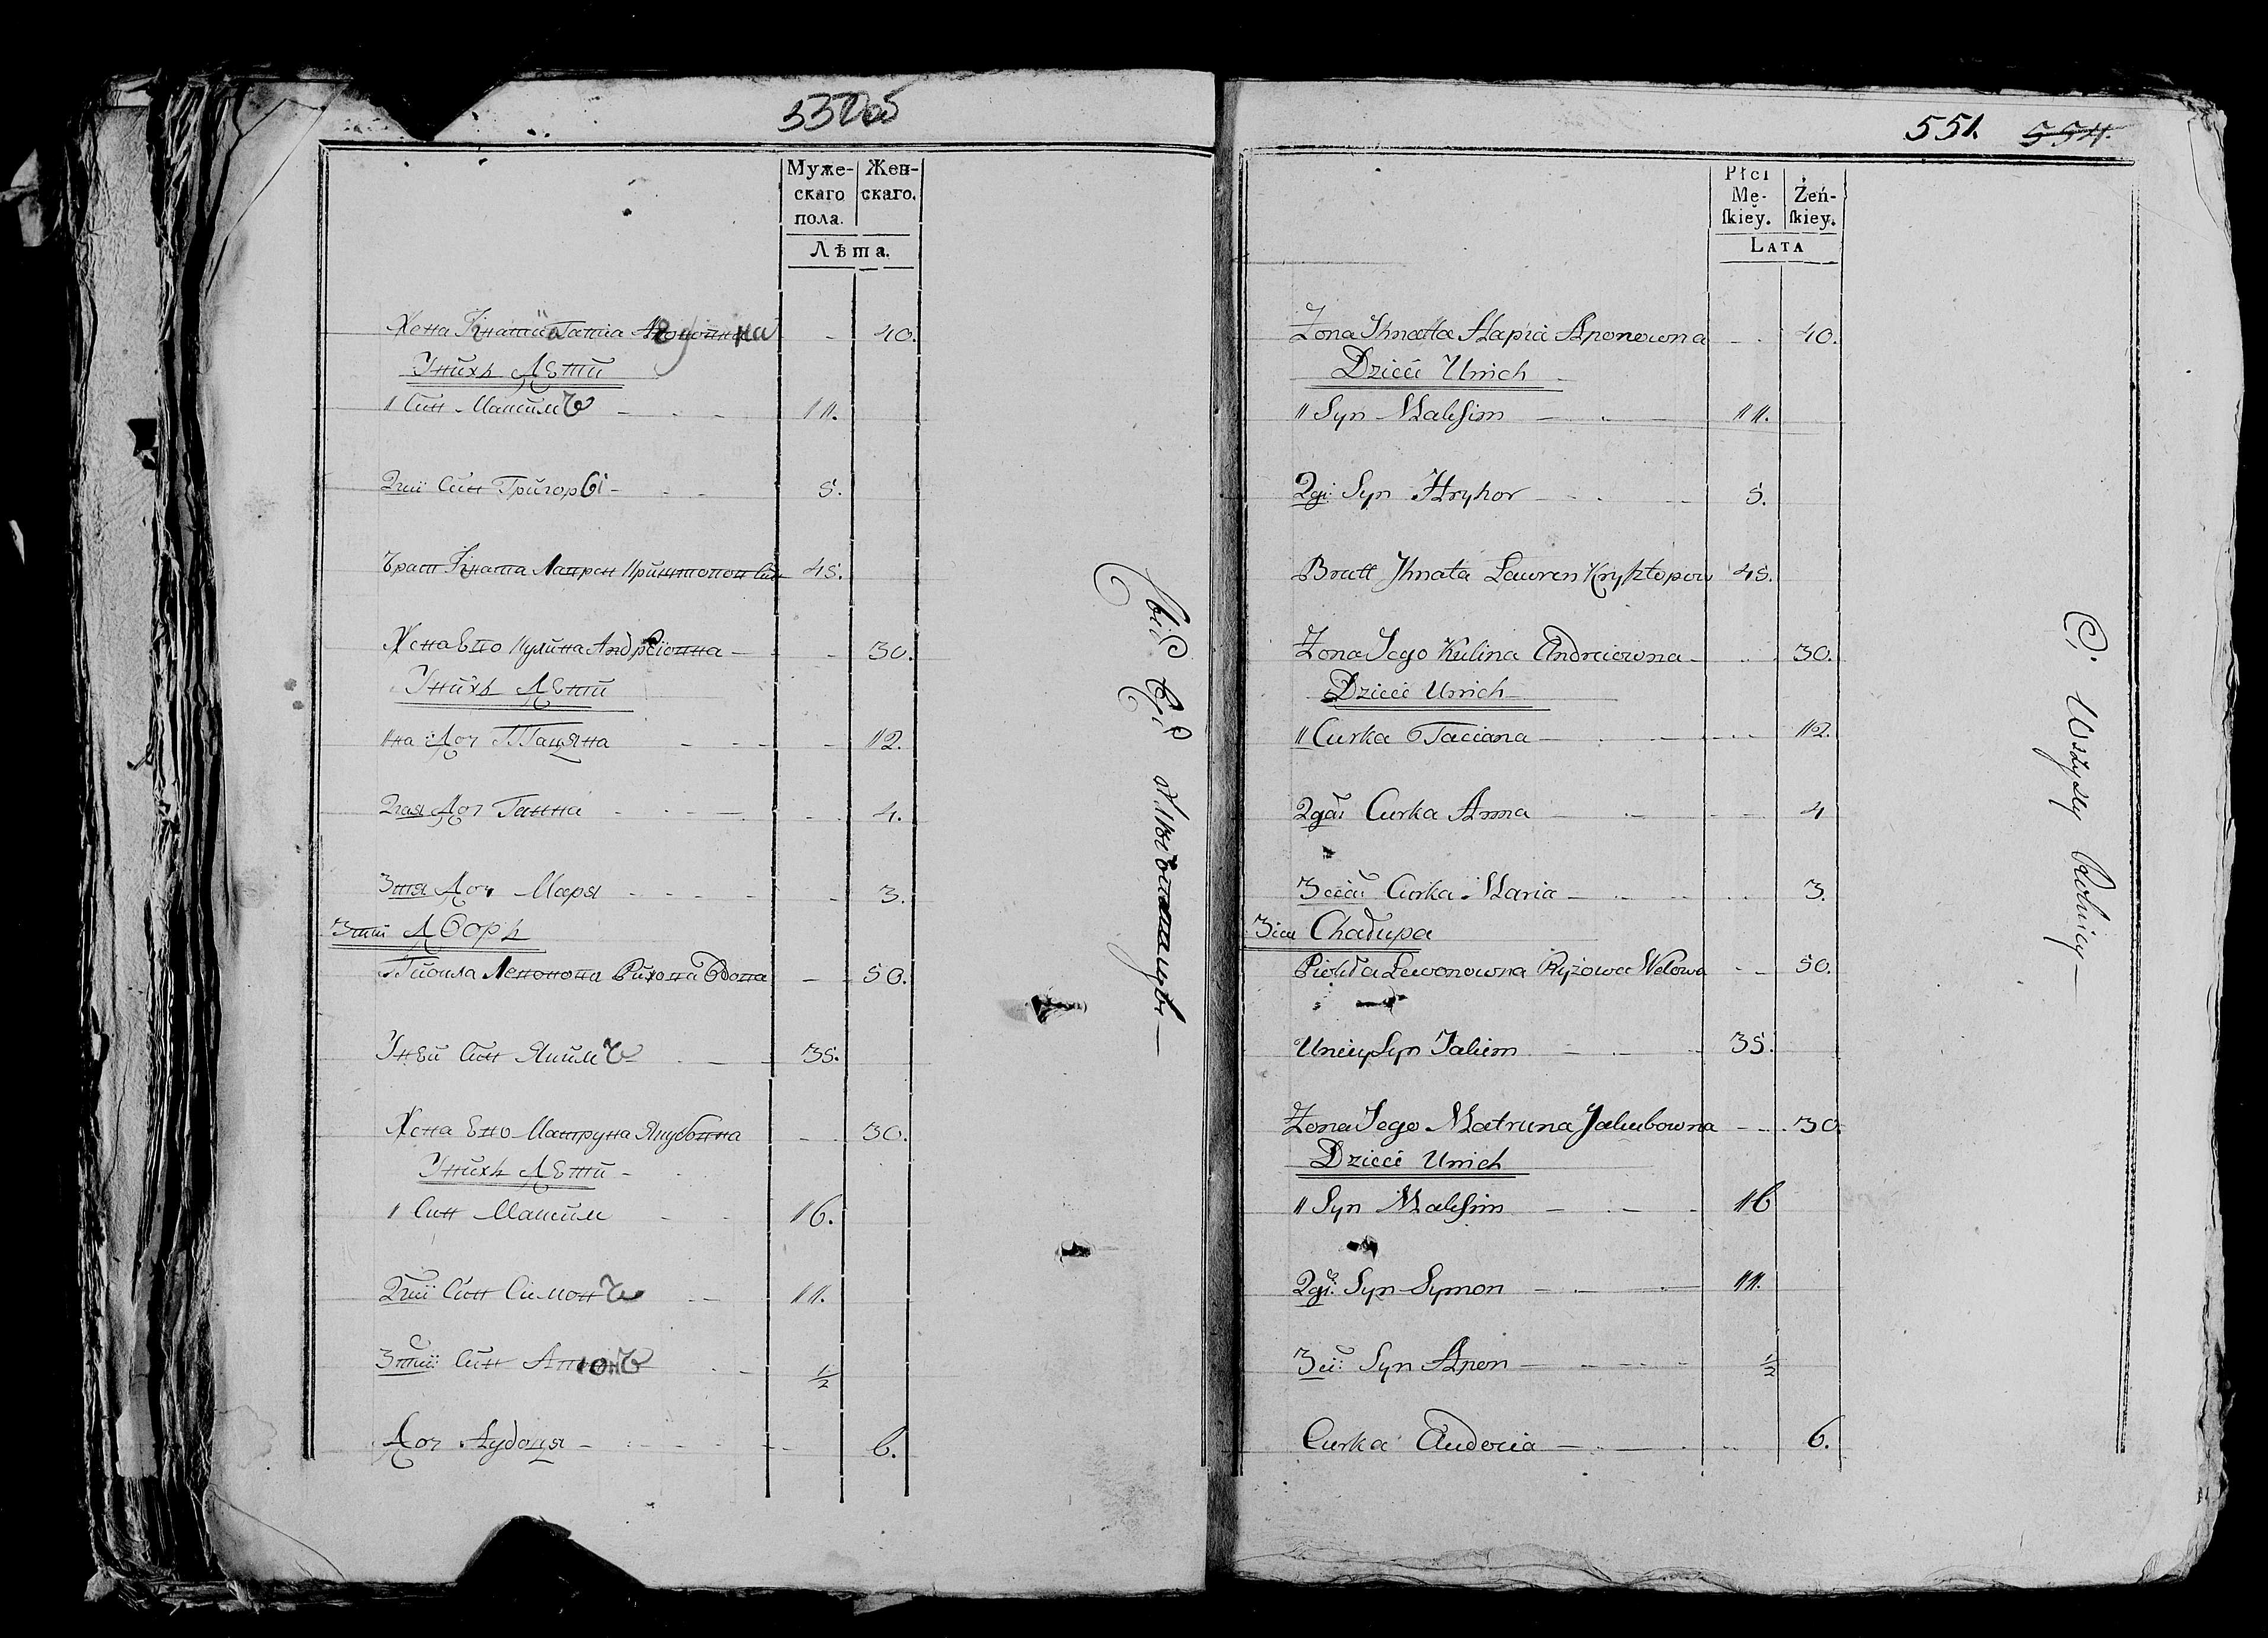 550об
Муже-
скаго
пола.
Жен-
скаго.
Лѣта.
Жена 40.
Унихъ Дети
1 Син Максимъ 11.
2гий Син Григорей 5.
Брат Ігната Лаврен Криштопов Син 45.
Жена Его Кулина Андреіовна 30.
Унихъ Дети
1на Доч Тацяна 12.
2гая Доч Ганна 4.
3тя Доч Маря 3.
3тий Дворъ
Левонова Рижова Вдова 50.
Уней Син Якимъ 35.
Жена Его Матруна Якубовна 30.
Унихъ Дети
1 Син Максим 16.
2гий Син Симонъ 11.
3тий Син 1/2
Доч Аудоця 6.
551. 554.
Płci
Mę-
ſkiey.
Żeń-
ſkiey.
LATA
Żona Ihnatta Hapia Aponowna 40.
Dzieci Unich
1 Syn Maksim 11.
2gi Syn Hryhor 5.
Bratt Ihnata Lawren Krysztopow 45.
Żona Jego Kulina Andreiowna 30.
Dzieci Unich
1 Curka Taciana 12.
2ga Curka Anna 4
3cia Curka Maria 3.
3cia Chałupa
Piokła Lewonowna Ryżowa Wdowa 50.
Uniey Syn Jakim 35.
Żona Jego Matruna Jakubowna 30.
Dzieci Unich
1 Syn Maksim 16
2gi Syn Symon 11.
3ci Syn Apon 1/2
Curka Audocia 6.
Ci Wszyscy Rolnicy